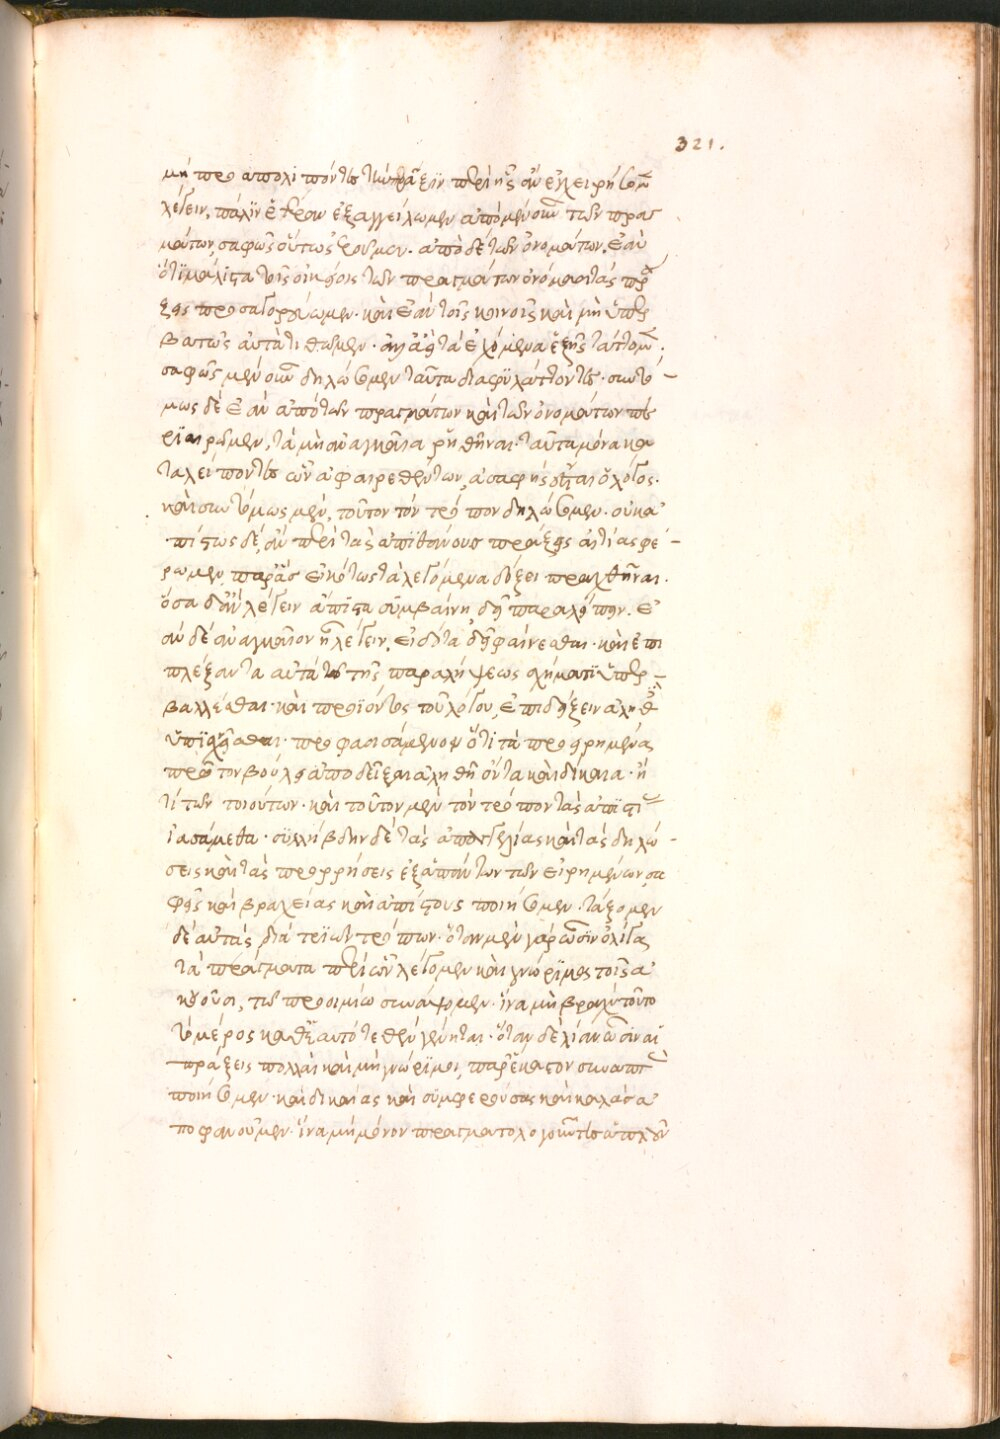 321.
μὴ προαπολιπόντες τὴν πρᾶξιν περὶ ἧς ἂν ἐγχειρήσωμεν
λέγειν, πάλιν ἑτέραν ἐξαγγείλωμεν ἀπὸ μὲν οὖν τῶν πραγ
μάτων, σαφῶς οὕτως ἐροῦμεν. ἀπὸ δὲ τῶν ὀνομάτων, ἐὰν
ὅτι μάλιστα τοῖς οἰκείοις τῶν πραγμάτων ὀνόμασι τὰς πρά
ξεις προσαγορεύωμεν. καὶ ἐὰν τοῖς κοινοῖς καὶ μὴ ὑπερ
βατῶς αὐτὰ τιθῶμεν. ἀλλ' ἀεὶ τὰ ἐχόμενα ἑξῆς τάττωμεν.
σαφῶς μὲν οὖν δηλώσομεν ταῦτα διαφυλάττοντες. συντό-
μως δὲ ἐὰν ἀπὸ τῶν πραγμάτων καὶ τῶν ὀνομάτων πε
ριαιρῶμεν, τὰ μὴ ἀναγκαῖα ῥηθῆναι. ταῦτα μόνα κα
ταλείποντες ὧν ἀφαιρεθέντων, ἀσαφὴς ἔσται ὁ λόγος.
καὶ συντόμως μὲν, τοῦτον τὸν τρόπον δηλώσομεν. οὐκ ἀ
πίστως δὲ, ἂν περὶ τὰς ἀπιθάνους πράξεις αἰτίας φέ-
ρωμεν, παρ' ἃς εἰκότως τὰ λεγόμενα δόξει πραχθῆναι.
ὅσα δ' ἂν λέγειν ἄπιστα συμβαίνη, δεῖ παραλείπειν. ἐ
ὰν δὲ ἀναγκαῖον ἦ λέγειν, εἰδότα δεῖ φαίνεσθαι. καὶ ἐπι
πλέξαντα αὐτὰ τῶ τῆς παραλήψεως σχήματι ὑπερ-
βάλλεσθαι. καὶ προϊόντος τοῦ λόγου, ἐπιδείξειν ἀληθῆ
ὑπισχνεῖσθαι. προφασισάμενον ὅτι τὰ προειρημένα
πρῶτον βούλει ἀποδεῖξαι ἀληθῆ ὄντα καὶ δίκαια. ἤ
τι τῶν τοιούτων. καὶ τοῦτον μὲν τὸν τρόπον τὰς ἀπιστί
ιασάμεθα. συλλήβδην δὲ τὰς ἀπαγγελίας καὶ τὰς δηλώ-
σεις καὶ τὰς προρρήσεις ἐξ ἁπάντων τῶν εἰρημένων, σα
φεῖς καὶ βραχείας καὶ ἀπίστους ποιήσομεν. τάξομεν
δὲ αὐτὰς διὰ τριῶν τρόπων. ὅταν μὲν γὰρ ὦσιν ὀλίγαι
τὰ πράγματα περὶ ὧν λέγομεν καὶ γνώριμος τοῖς ἀ
κούουσι, τῶ προοιμίω συνάψομεν. ἵνα μὴ βραχὺ τοῦτο
τὸ μέρος καθ' ἑαυτὸ τεθὲν γένηται. ὅταν δὲ λίαν ὦσιν αἱ
πράξεις πολλαὶ καὶ μὴ γνώριμοι, παρ' ἕκαστον συναπτὰς
ποιήσομεν. καὶ δικαίας καὶ συμφερούσας καὶ καλὰς ἀ
ποφανοῦμεν. ἵνα μὴ μόνον πραγματολογοῦντες ἁπλοῦν